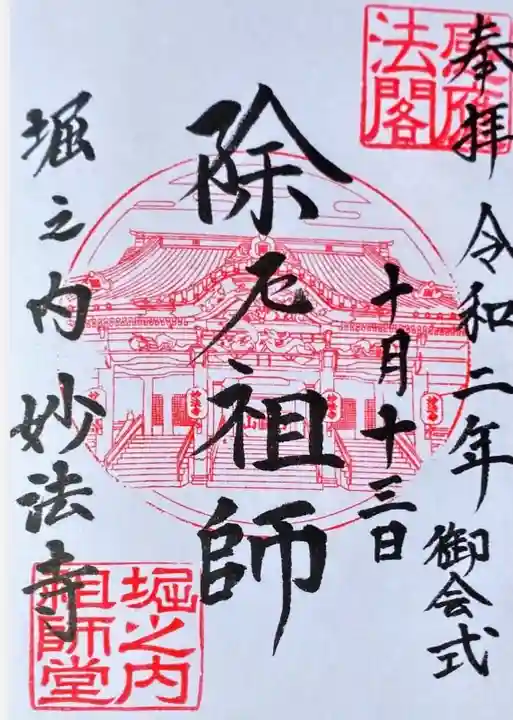 奉拝 令和二年 御会式
十月十三日
除厄祖師
堀之内 妙法寺
感應法閣
堀之内祖師堂
妙法寺